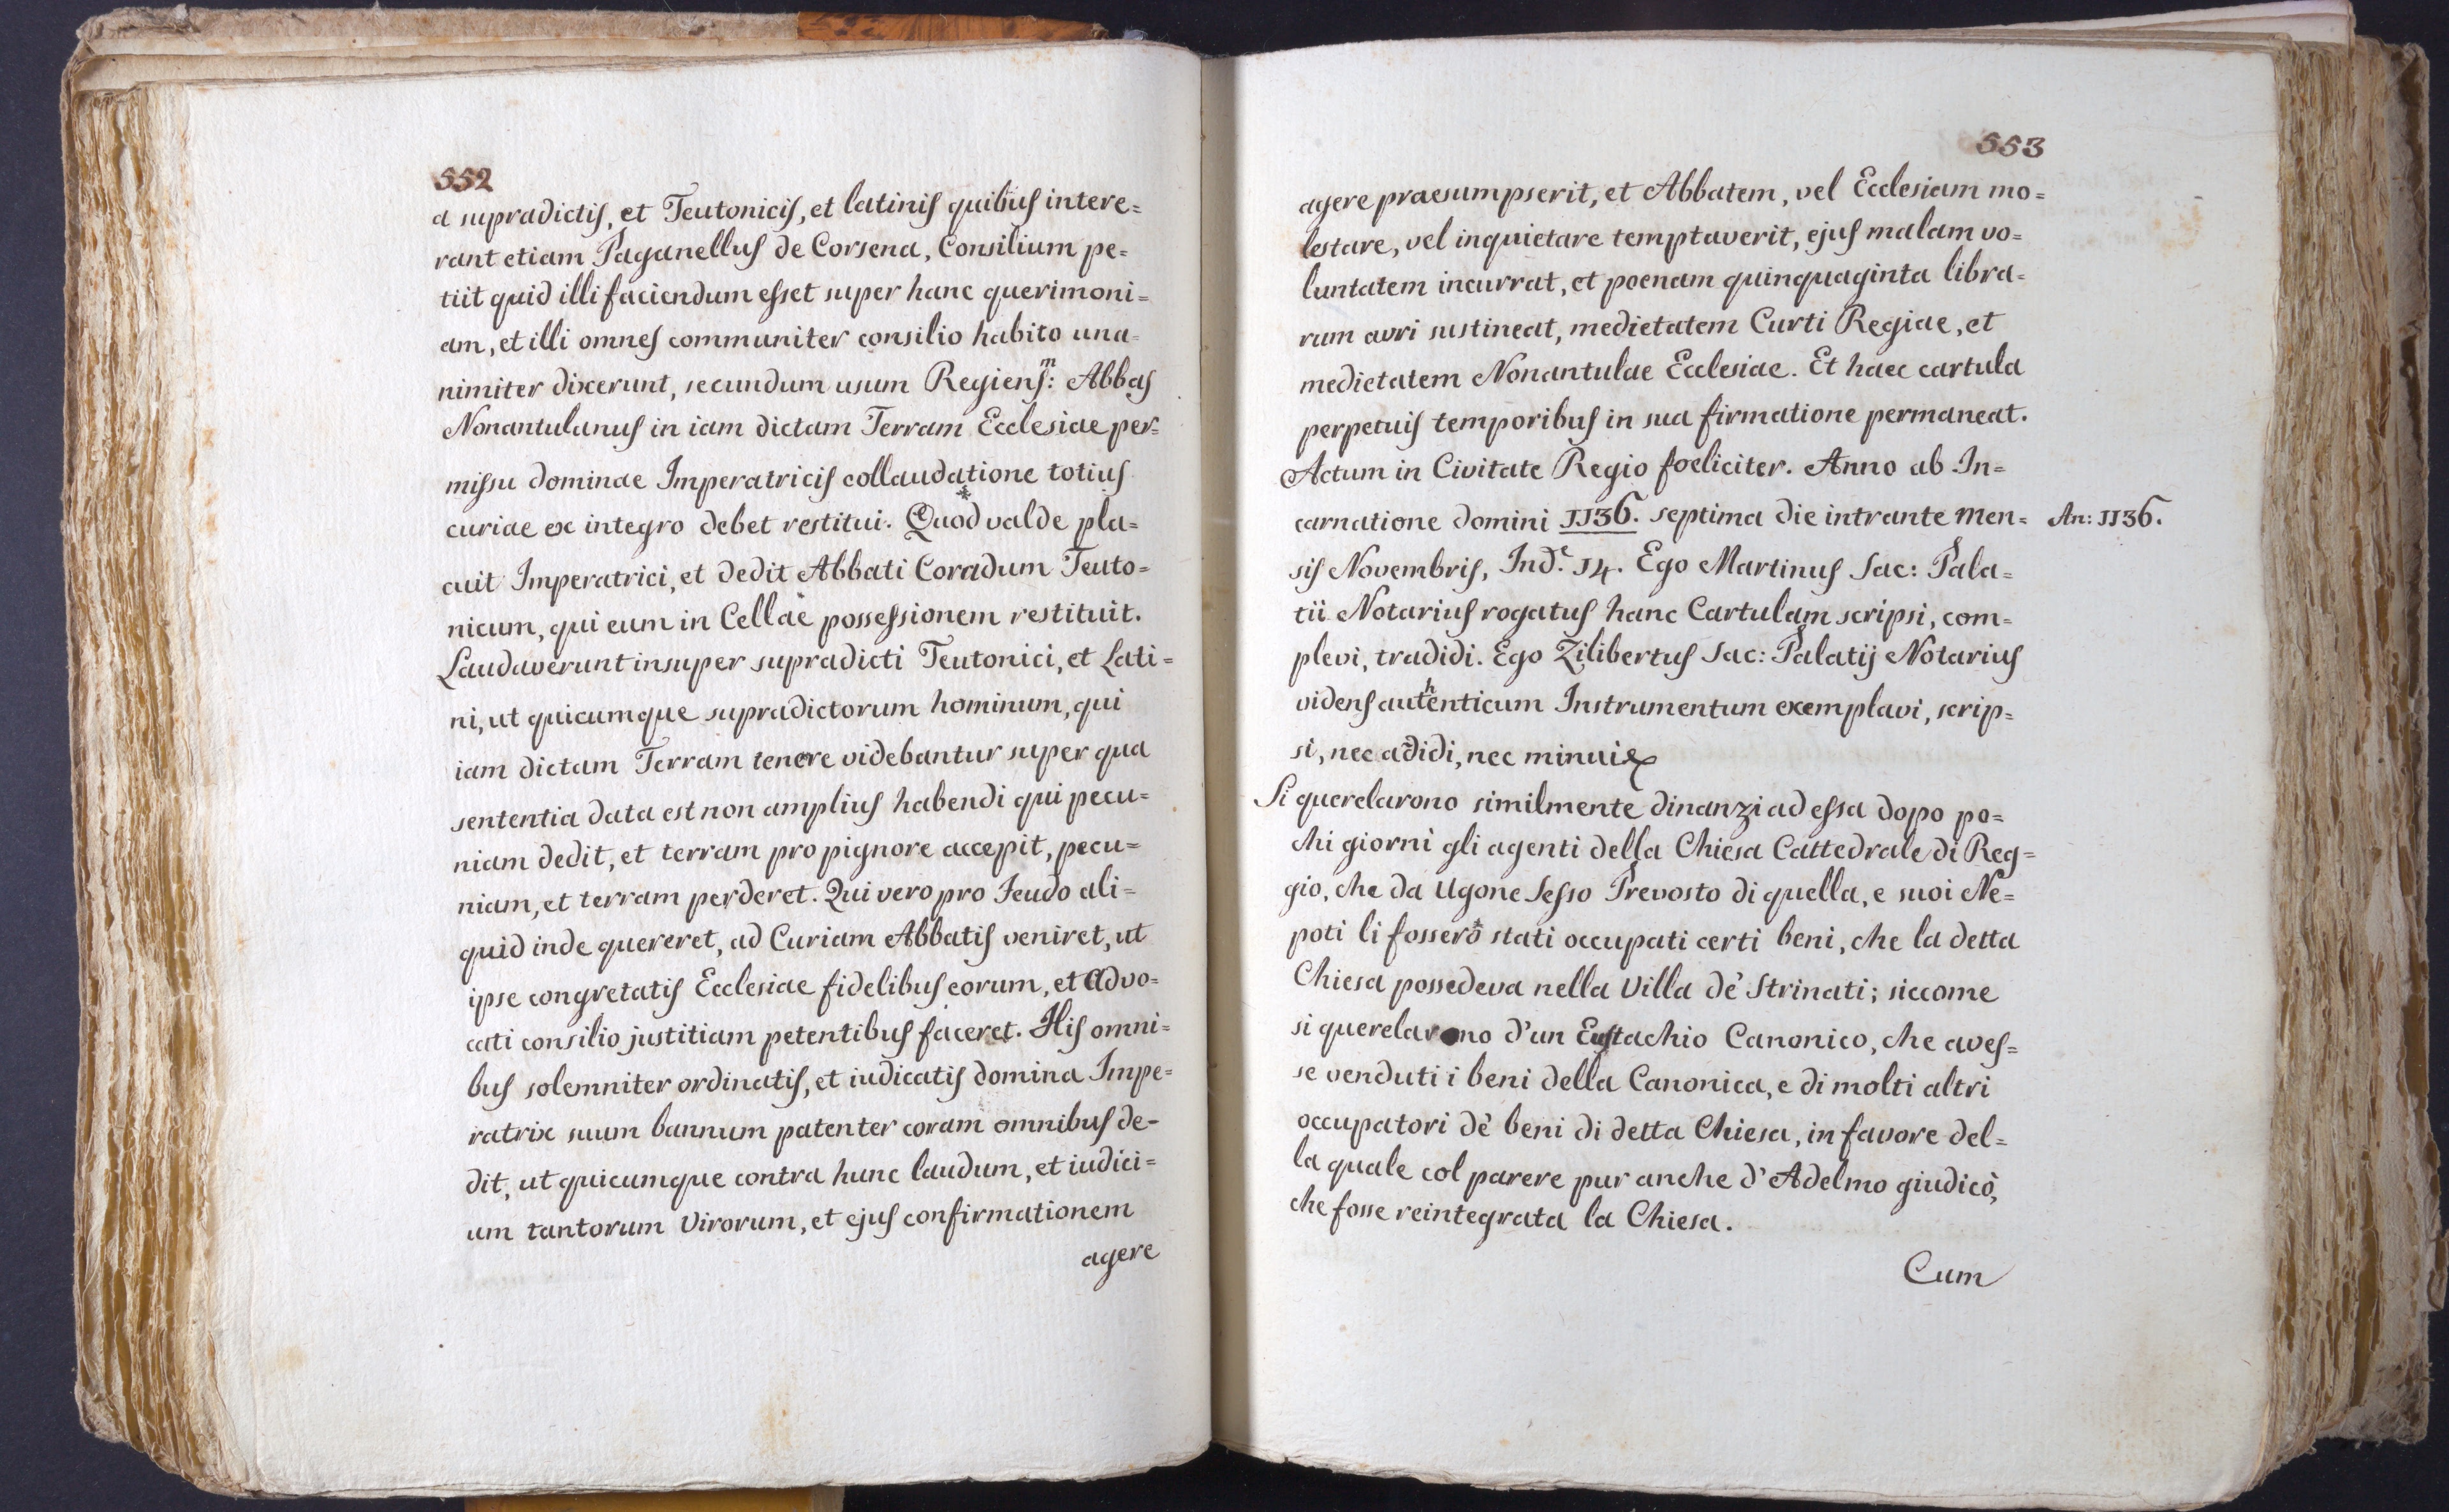 552
a supradictis, et Teutonicis, et latinis quibus intere=
rant etiam Paganellus de Corsena, Consilium pe=
tiit quid illi faciendum esset super hanc querimoni=
am, et illi omnes communiter consilio habito una=
nimiter dixerunt, secundum usum Regiens:m Abbas
Nonantulanus in iam dictam Terram Ecclesiae per=
missu dominae Imperatricis collaudatione totius
curiae ex integro debet restitui. Quod valde pla=
cuit Imperatrici, et dedit Abbati Coradum Teuto=
nicum, qui eum in Cellae possessionem restituit.
Laudaverunt insuper supradicti Teutonici, et Lati=
ni, ut quicumque supradictorum hominum, qui
iam dictam Terram tenere videbantur super qua
sententia data est non amplius habendi qui pecu=
niam dedit, et terram pro pignore accepit, pecu=
niam, et terram perderet. Qui vero pro Feudo ali=
quid inde quereret, ad Curiam Abbatis veniret, ut
ipse congretatis Ecclesiae fidelibus eorum, et Advo=
cati consilio justitiam petentibus faceret. His omni=
bus solemniter ordinatis, et iudicatis domina Impe=
ratrix suum bannum patenter coram omnibus de-
dit, ut quicumque contra hunc laudum, et iudici=
um tantorum Virorum, et ejus confirmationem
agere
553
agere praesumpserit, et Abbatem, vel Ecclesiam mo=
lestare, vel inquietare temptaverit, ejus malam vo=
luntatem incurrat, et poenam quinquaginta libra=
rum auri sustineat, medietatem Curti Regiae, et
medietatem Nonantulae Ecclesiae. Et haec cartula
perpetuis temporibus in sua firmatione permaneat.
Actum in Civitate Regio foeliciter. Anno ab In=
carnatione domini 1136. septima die intrante men=
An: 1136.
sis Novembris, Ind.e 14. Ego Martinus Sac: Pala=
tii Notarius rogatus hanc Cartulam scripsi, com=
plevi, tradidi. Ego Zilibertus Sac: Palatij Notarius
videns authenticum Instrumentum exemplavi, scrip=
si, nec adidi, nec minui
Si querelarono similmente dinanzi ad essa dopo po=
chi giorni gli agenti della Chiesa Cattedrale di Reg=
gio, che da Ugone Sesso Prevosto di quella, e suoi Ne=
poti li fossero stati occupati certi beni, che la detta
Chiesa possedeva nella Villa de' Strinati; siccome
si querelarono d'un Eustachio Canonico, che aves=
se venduti i beni della Canonica, e di molti altri
occupatori de' beni di detta Chiesa, in favore del=
la quale col parere pur anche d'Adelmo giudicò,
che fosse reintegrata la Chiesa.
Cum